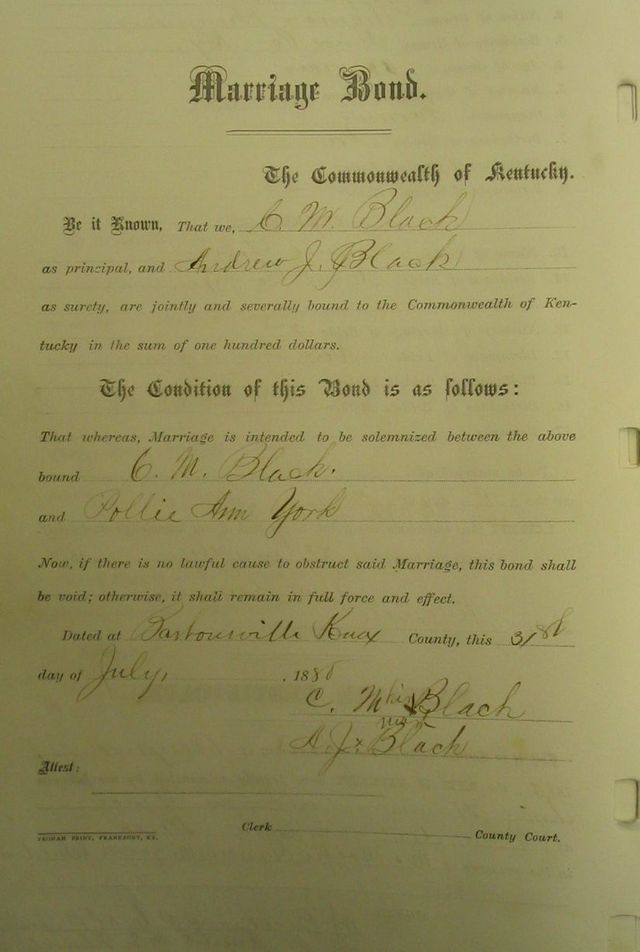 Marriage Bond.
The Commonwealth of Kentucky.
Be it Known, That we, C. M. Black
as principal, and Andrew J. Black
as surety, are jointly and severally bound to the Commonwealth of Ken-
tucky in the sum of one hundred dollars.
The Condition of this Bond is as follows:
That whereas, Marriage is intended to be solemnized between the above
bound C. M. Black.
and Pollie Ann York
Now, if there is no lawful cause to obstruct said Marriage, this bond shall
be void; otherwise, it shall remain in full force and effect.
Dated at Barbourville Knox County, this 31st
day of July, , 188
C. M his X Black
mark
A. J. Black
Attest:
Clerk County Court.
YEOMAN PRINT, FRANKFORT, KY.